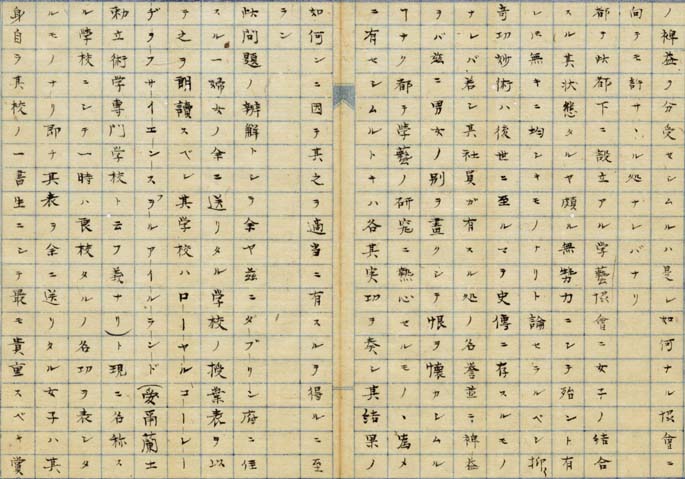 ノ裨益ヲ分受セシムルハ是レ如何ナル協會ニ
向テモ許サヽル処ナレバナリ
都テ此都下ニ設立アル学藝協會ニ女子ノ結合
スル其状態タルヤ頗ル無勢力ニシテ殆ント有
レ𪜈無キニ均シキモノナリト論セラルベシ抑
奇功妙術ハ後世ニ至ルマテ史傳ニ存スルモノ
ナレバ若シ其社員ガ有スル処ノ名誉並ニ裨益
ヲバ茲ニ男女ノ別ヲ畫クシテ恨ヲ懐カシムル
ヿナク都テ學藝ノ研究ニ熱心セルモノヽ為メ
ニ有セシムルトキハ各其実功ヲ奏シ其結果ノ
如何ンニ因テ其之ヲ適当ニ有スルヲ得ルニ至
ラン
此問題ノ辨解トシテ余ヤ茲ニダーブリン府ニ住
スル一婦女ノ余ニ送リタル学校ノ授業表ヲ以
テ之ヲ朗讀スベシ其学校ハローヤルコーレー
ヂヲーフサイエーンスヲフアイルランド(愛爾蘭土
勅立術学専門学校ト云フ義ナリ)ト現ニ名称ス
ル学校ニシテ一時ハ良校タルノ名功ヲ表シタ
ルモノナリ即チ其表ヲ余ニ送リタル女子ハ其
身自ラ其校ノ一書生ニシテ最モ貴重スベキ賞